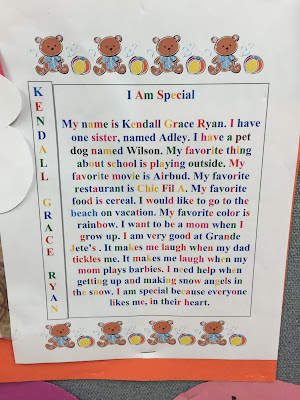 KENDALL GRACE RYAN
I Am Special
My name is Kendall Grace Ryan. I have
one sister, named Adley. I have a pet
dog named Wilson. My favorite thing
about school is playing outside. My
favorite movie is Airbud. My favorite
restaurant is Chic Fil A. My favorite
food is cereal. I would like to go to the
beach on vacation. My favorite color is
rainbow. I want to be a mom when I
grow up. I am very good at Grande
Jete's . It makes me laugh when my dad
tickles me. It makes me laugh when my
mom plays barbies. I need help when
getting up and making snow angels in
the snow. I am special because everyone
likes me, in their heart.